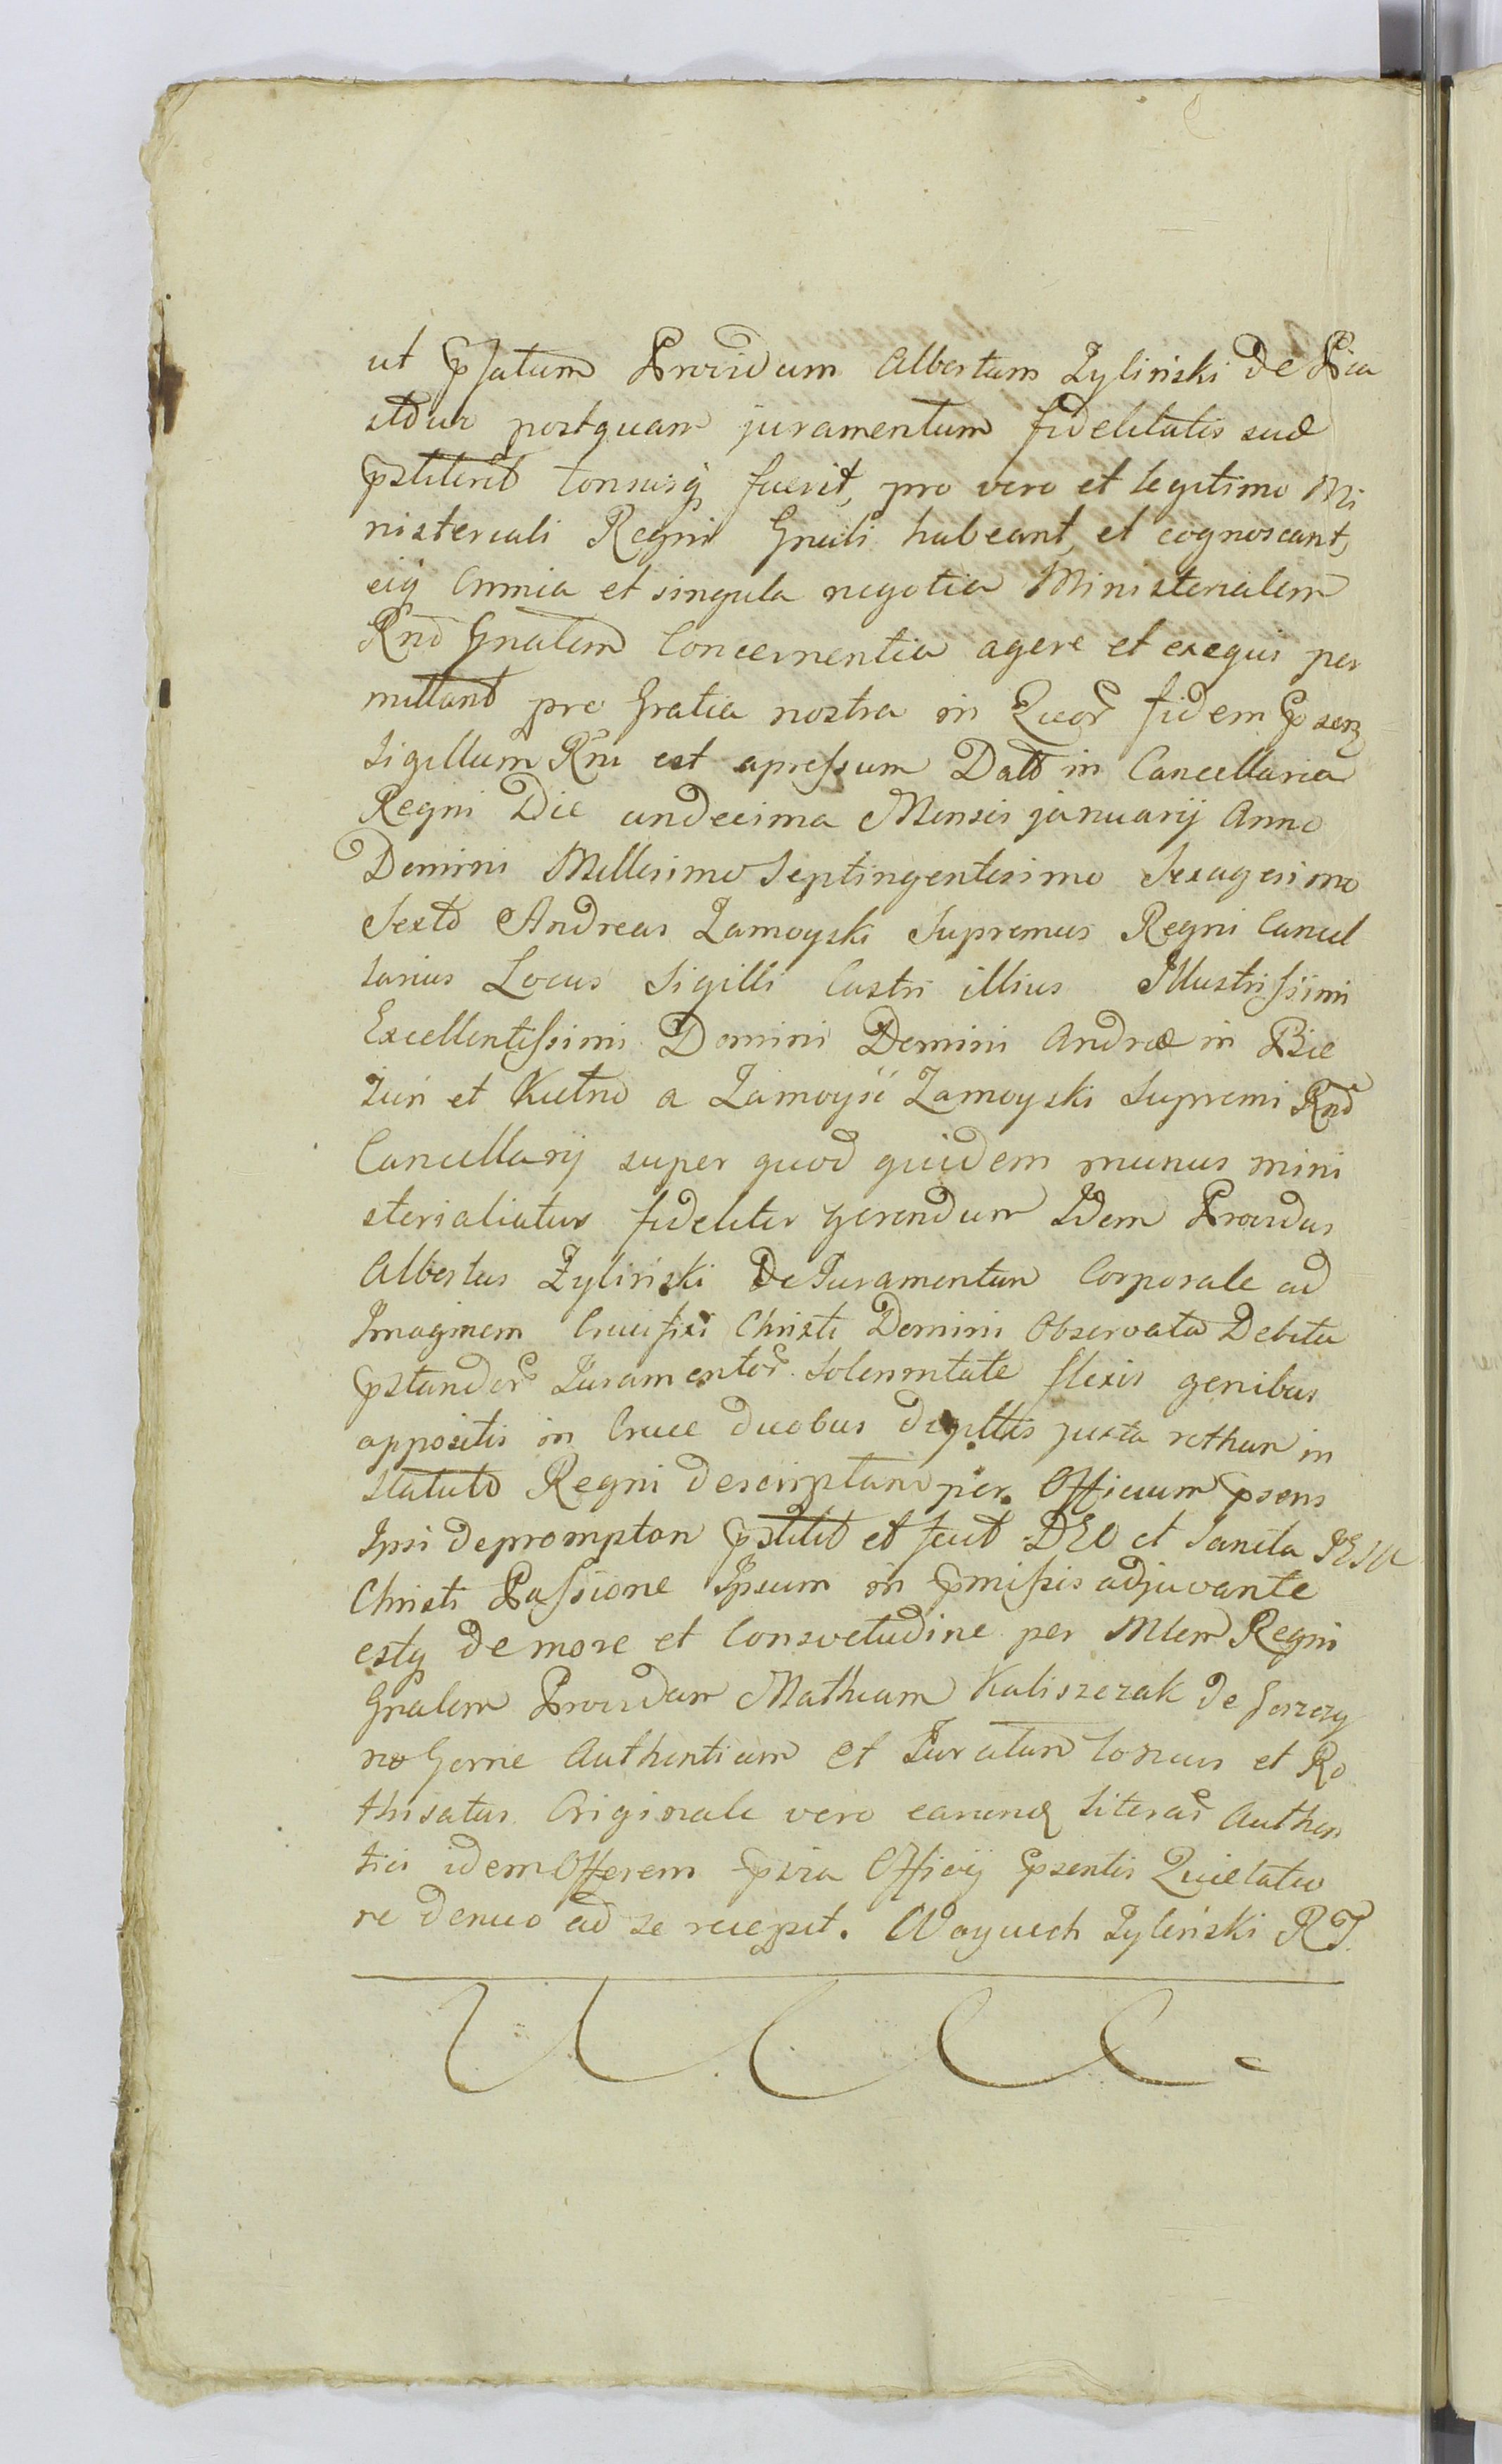 ut pfatum Providum Albertum Zyliński de Pia
stow postquam juramentum fidelitatis suæ
pstiterit tonsusq fuerit, pro vero et legitimo Mi
nisteriali Regni Gnrali habeant, et cognoscant,
eiq Omnia et singula negotia Ministerialem
Rni Gnalem Concernentia agere et exequi per
mittant pro Gratia nostra in Quor fidem psen
Sigillum Rni est apressum Datt in Cancellaria
Regni Die undecima Mensis january Anno
Domini Millesimo Septingentesimo Sexagesimo
Sexto Andreas Zamoyski Supremus Regni Cancel
larius Locus Sigilli Castri illius Illustrissimi
Excellentissimi Domini Domini Andreæ in Bie
żuń et Kutno a Zamoyść Zamoyski Supremi Rni
Cancellarij super quod quidem munus mini
sterialiatus fideliter gerendum Idem Providus
Albertus Zyliński De Juramentum Corporale ad
Imaginem Crucifixi Christi Domini Observata Debita
pstandor Juramentor Solennitate flexis genibus
appositis in Cruce duobus digittis juxta rotham in
Statuto Regni descriptam per Officium psens
Ipsi depromptan pstitit et fecit DEO et Sancta JESU
Christi Passione Ipsum in pmissis adjuvante
estq de more et Consvetudine per Mlem Regni
Gnalem Providum Mathiam Kaliszczak de
Gorne Authenticum et Juratum tonsus et Ro
thisatus Originale vero earundq Literar Authen
tici idem Offerens psia Officij psentis Quietatio
ne denuo ad se recepit. Woyciech Zyliński RT.